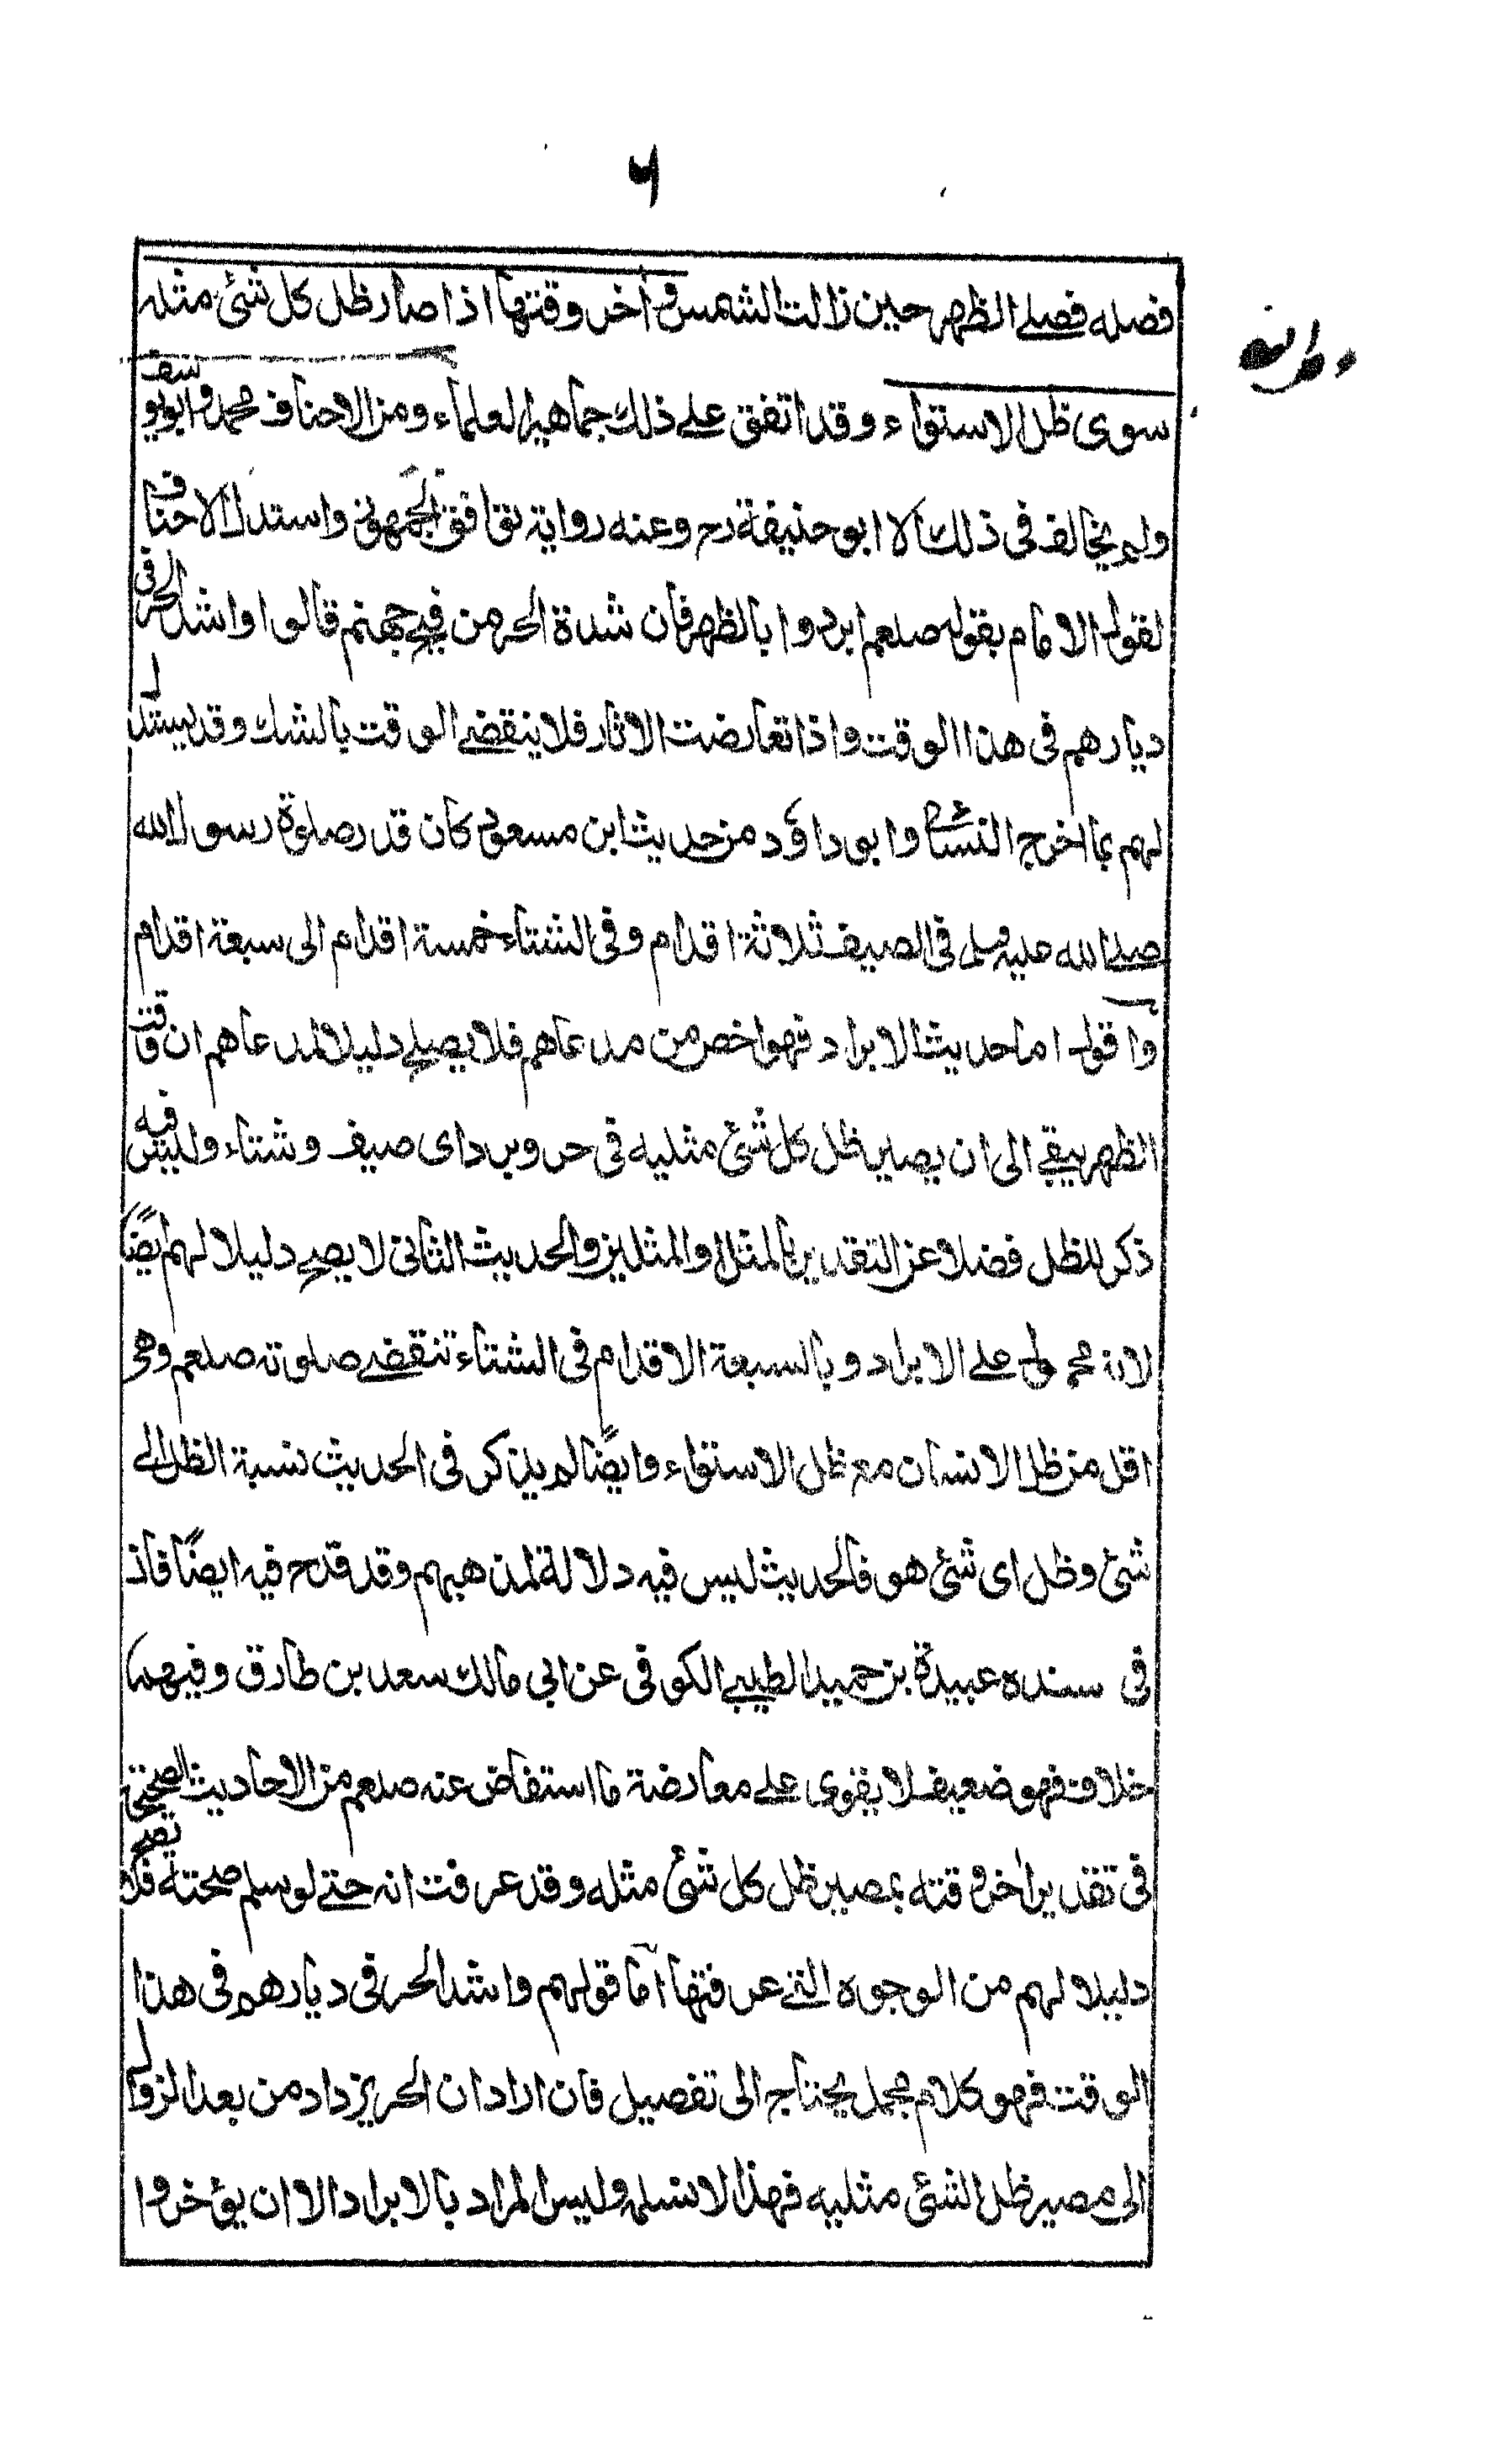 ٦
فصله فصلے الظهر حين زالت الشمس و آخر وقتها اذا صار ظل كل شئ مثله
سوى ظل الاستواء وقد اتفق علے ذلك جماهير العلماء ومن الاحناف محمد وابو يوسف
ولم يخالف فى ذلك الا ابو حنيفة رح وعنه رواية توافق الجمهور واستدل الاحناف
لقول الامام بقوله صلعم ابردوا بالظهر فان شدة الحر من فيح جهنم قالوا واشد الحر فى
ديارهم فى هذا الوقت واذا تعارضت الاثار فلا ينقضے الوقت بالشك وقد يستدل
لهم بما اخرج النسائى وابو داؤد من حديث ابن مسعود كان قدر صلوة رسول الله
صلے الله عليه وسلم فى الصيف ثلاثة اقدام وفى الشتاء خمسة اقدام الى سبعة اقدام
واقول اما حديث الابراد فهو اخص من مدعاهم فلا يصلح دليلا لمدعاهم ان وقت
الظهر يبقے الى ان يصير ظل كل شئ مثليه فى حر وبرد اى صيف وشتاء وليس فيه
ذكر للظل فضلا عن التقدير بالمثل او المثلين والحديث الثانى لا يصح دليلا لهم ايضًا
لانه محمول علے الابراد وبالسبعة الاقدام فى الشتاء تنقضے صلوته صلعم وهى
اقل من ظل الانسان مع ظل الاستواء وايضًا لم يذكر فى الحديث نسبة الظل الے
شئ وظل اى شئ هو فالحديث ليس فيه دلالة لمذهبهم وقد قدح فيه ايضًا فان
فى سنده عبيدة بن حميد الطيبے الكوفى عن ابى مالك سعد بن طارق وفيهما
خلاف فهو ضعيف لا يقوى علے معارضة ما استفاض عنه صلعم من الاحاديث الصحيحة
فى تقدير آخر وقته بمصير ظل كل شئ مثله وقد عرفت انه حتے لو سلم صحته فلا يصح
دليلا لهم من الوجوه التے عرفتها اما قولهم واشد الحر فى ديارهم فى هذا
الوقت فهو كلام مجمل يحتاج الى تفصيل فان اراد ان الحر يزداد من بعد الزوال
الى مصير ظل الشئ مثليه فهذا لا نسلمه وليس المراد بالابراد الا ان يؤخروا